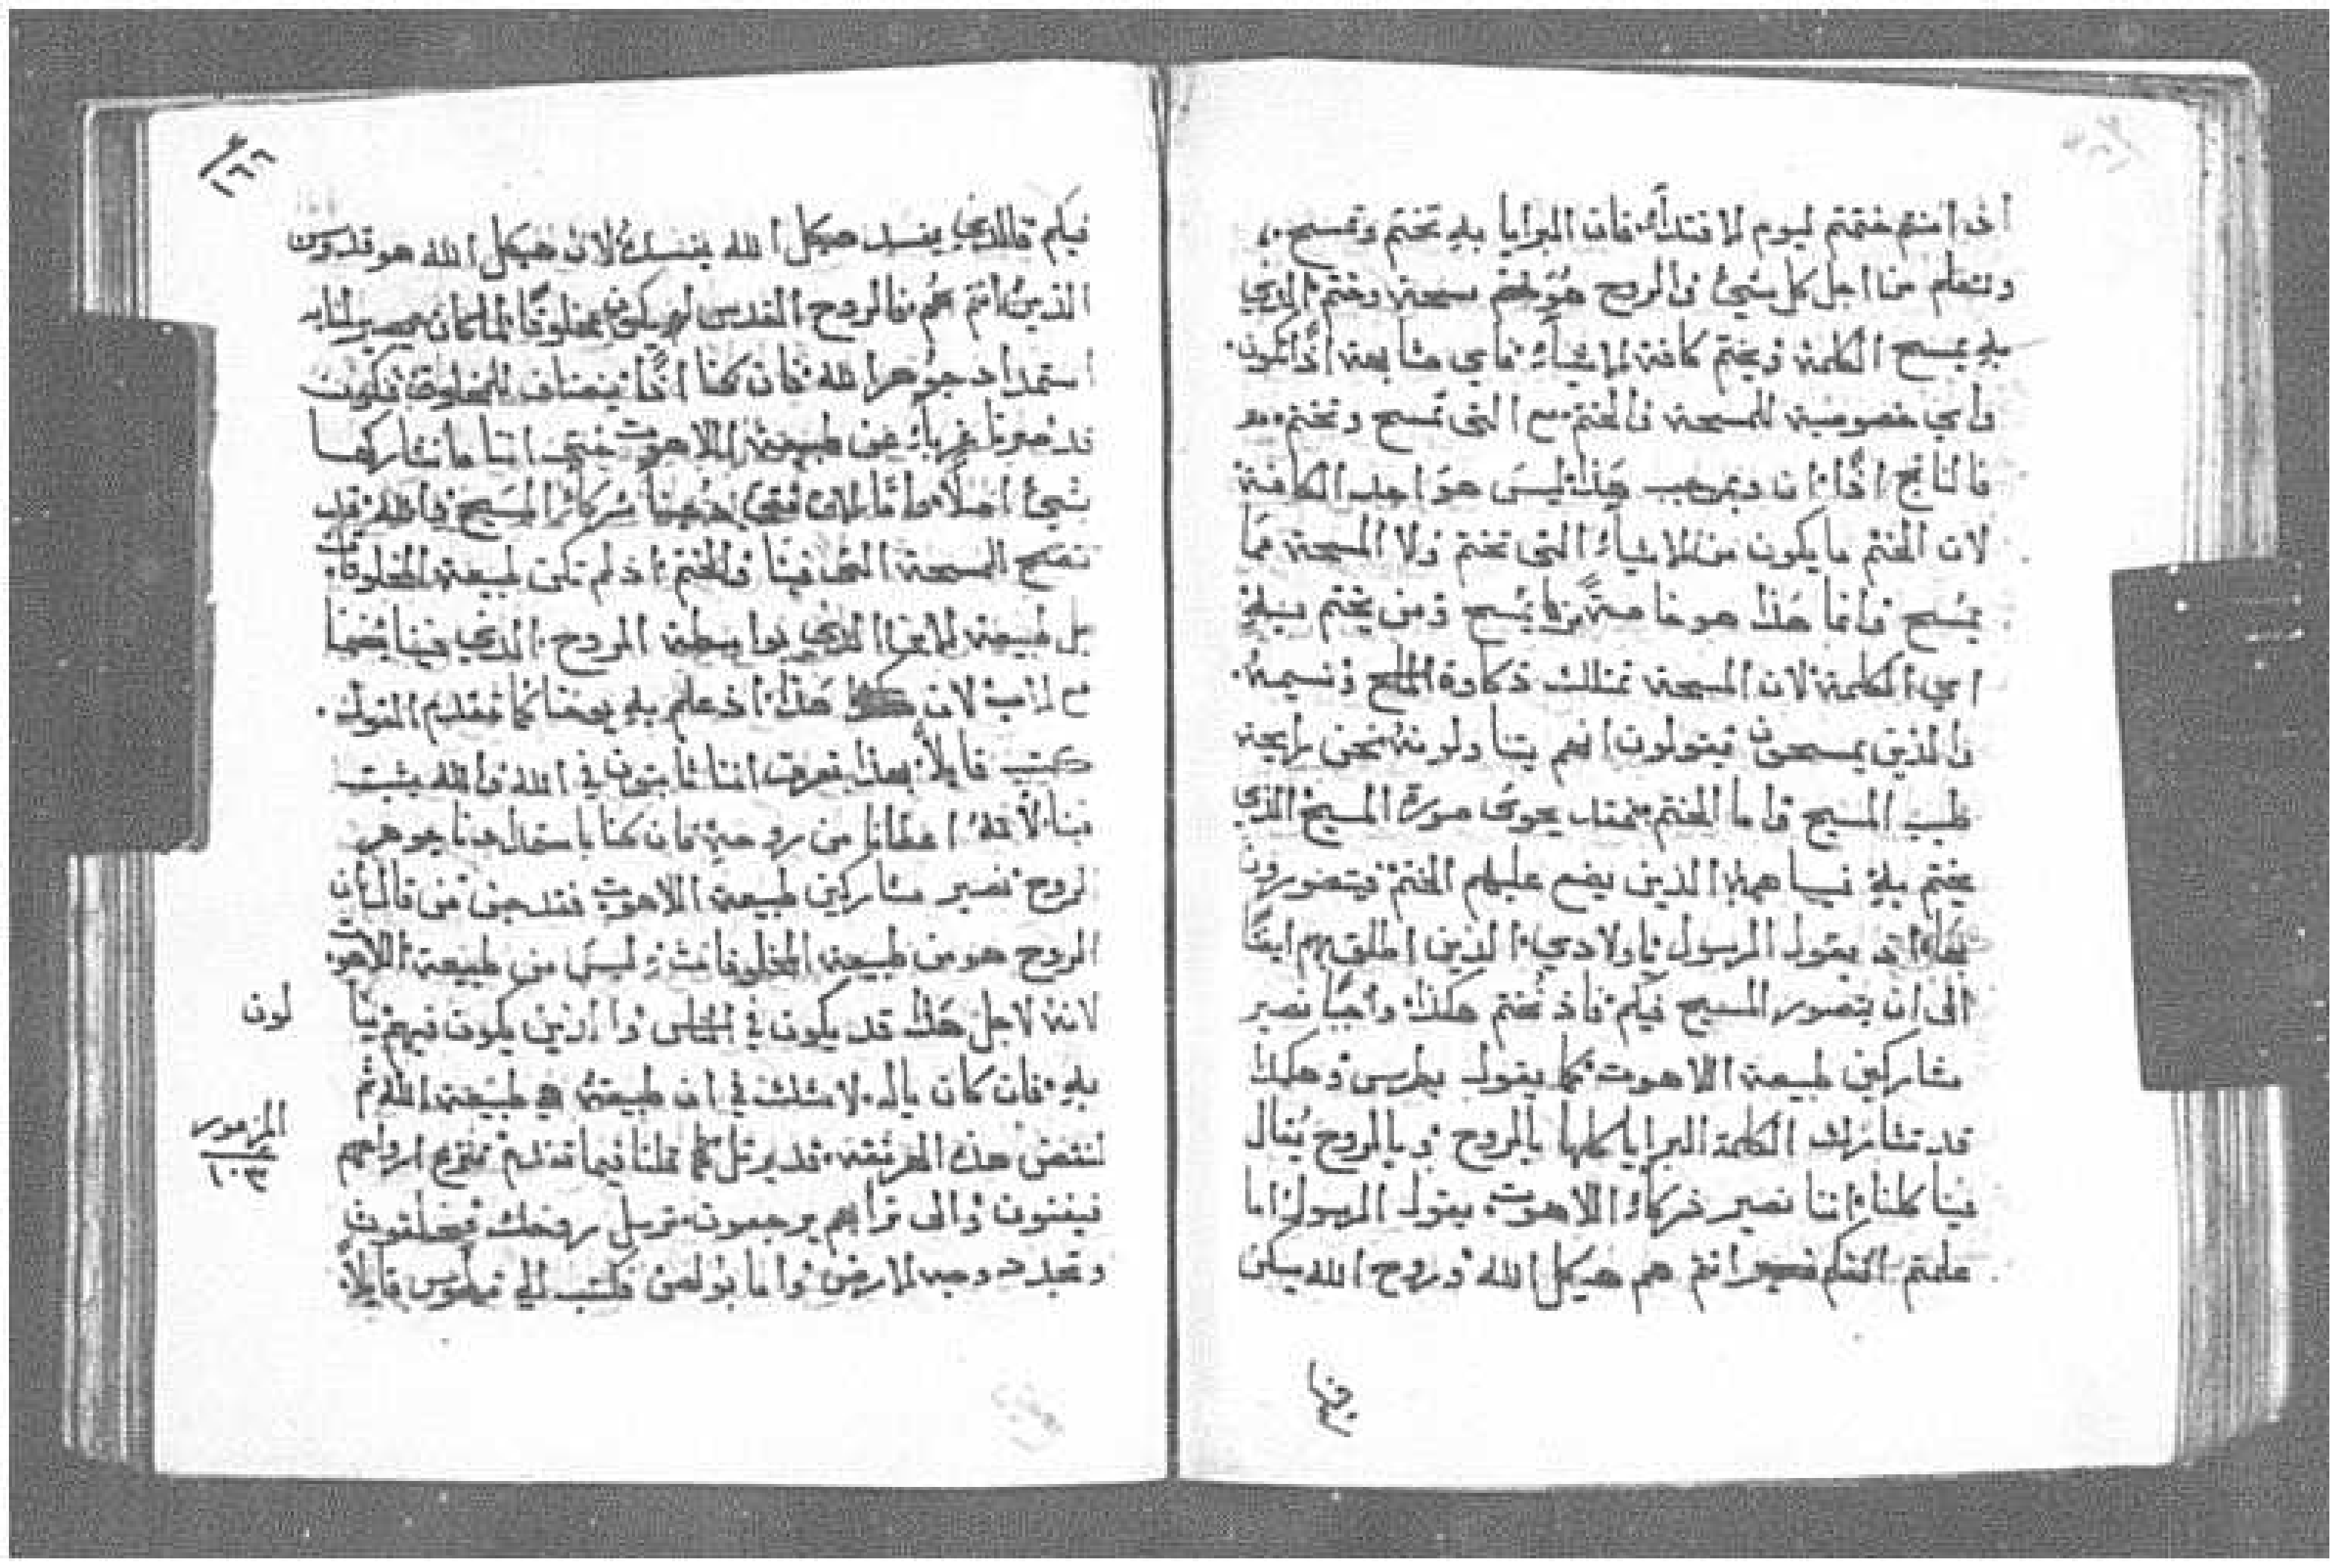 ختمتم ليوم الافتداء فان البرايا به تختم وتمسح
وتتعلم من اجل كل شيء والروح هو مسحة وختم الذي
به يمسح الكلمة ويختم كافة الاشياء فاي مشابهة اذًا تكون
واي خصوصية للمسحة والختم مع التي تمسح وتختم
فالناتج اذًا ان وبموجب هذا ليس هو احد الكافة
لان الختم ما يكون من الاشياء التي تختم ولا المسحة مما
يمسح وانما هذا هو خاصة يمسح ومن يختم به
اي الكلمة لان المسحة تمتلك ذكاوة الماسح ونسيمه
والذين يمسحون فيقولون اذا نحن رايحة
طيب المسيح واما الختم يحوي صورة المسيح الذي
يختم به الذين يضع عليهم الختم فيتصورون
يقول الرسول يا اولادي الذين اطلق بهم ايضًا
الى ان يتصور المسيح فيكم فاذ نختم هكذا واجبًا نصير
مشاركين طبيعة اللاهوت كما يقول بطرس وهكذا
قد تشارك الكلمة البرايا كلها بالروح وبالروح يقال
فينا كلنا اننا نصير شركاء اللاهوت يقول الرسول اما
علمتم انكم انتم هم هيكل الله وروح الله ساكن
فيكم فالذي يفسد هيكل الله يفسده لان هيكل الله هو قدوس
الذين انتم هم فالروح القدس لو يكون مخلوقًا لما كان يصير لنا به
استمداد جوهر الله فان كنا اذًا نضاف للمخلوقة فنكون
قد صرنا غرباء عن طبيعة اللاهوت حتى اننا ما نشاركها
بشيء اصلًا واما الان شركاء المسيح والله قد
تتضح المسحة التي فينا والختم اذ لم تكن طبيعة المخلوقات
بل طبيعة الابن الذي بواسطة الروح الذي فينا يضمنا
مع الاب لان هذا اذ علم به يوحنا كما تقدم القول
كتب قايلًا بهذا نعرف اننا ثابتون في الله والله يثبت
فينا لانه اعطانا من روحه فان كنا باستمدادنا جوهر
الروح نصير مشاركين طبيعة اللاهوت فقد جن من قال ان
الروح هو من طبيعة المخلوقات وليس من طبيعة اللاهوت
لانه لاجل هذا قد يكون في والذين يكون فيهم
لون
به فان كان ياله لا شك في ان طبيعته هي طبيعة الله ثم
لننقض هذه الهرتقة قد يرتل كما قلنا فيما تقدم تنتزع ارواحهم
المزمور
١٠٣
فيفنون والى ترابهم يرجعون ترسل روحك فيخلقون
وتجدد وجه الارض واما بولس فكتب الى تيطس قايلًا